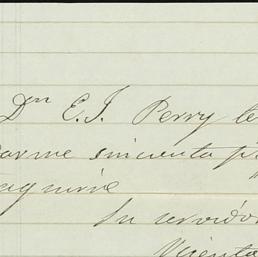 Dn E. J. Perry te
darme sincuenta p
aguirre
Su servido
Vicenta